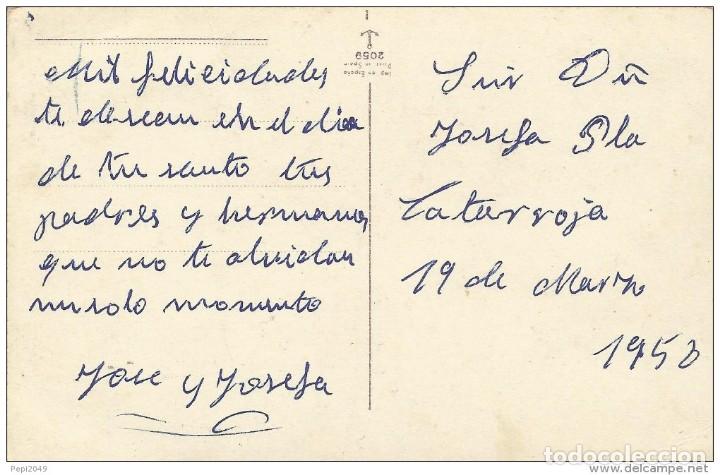 Mil felicidades
te desean en el dia
de tu santo tus
padres y hermanos
que no te olvidan
ni solo momento
Jose y Josefa
2059
Imp en España
Print in Spain
Srta Dñ
Josefa Pla
Catarroja
19 de Marzo
1958
Pepi2049
todocoleccion